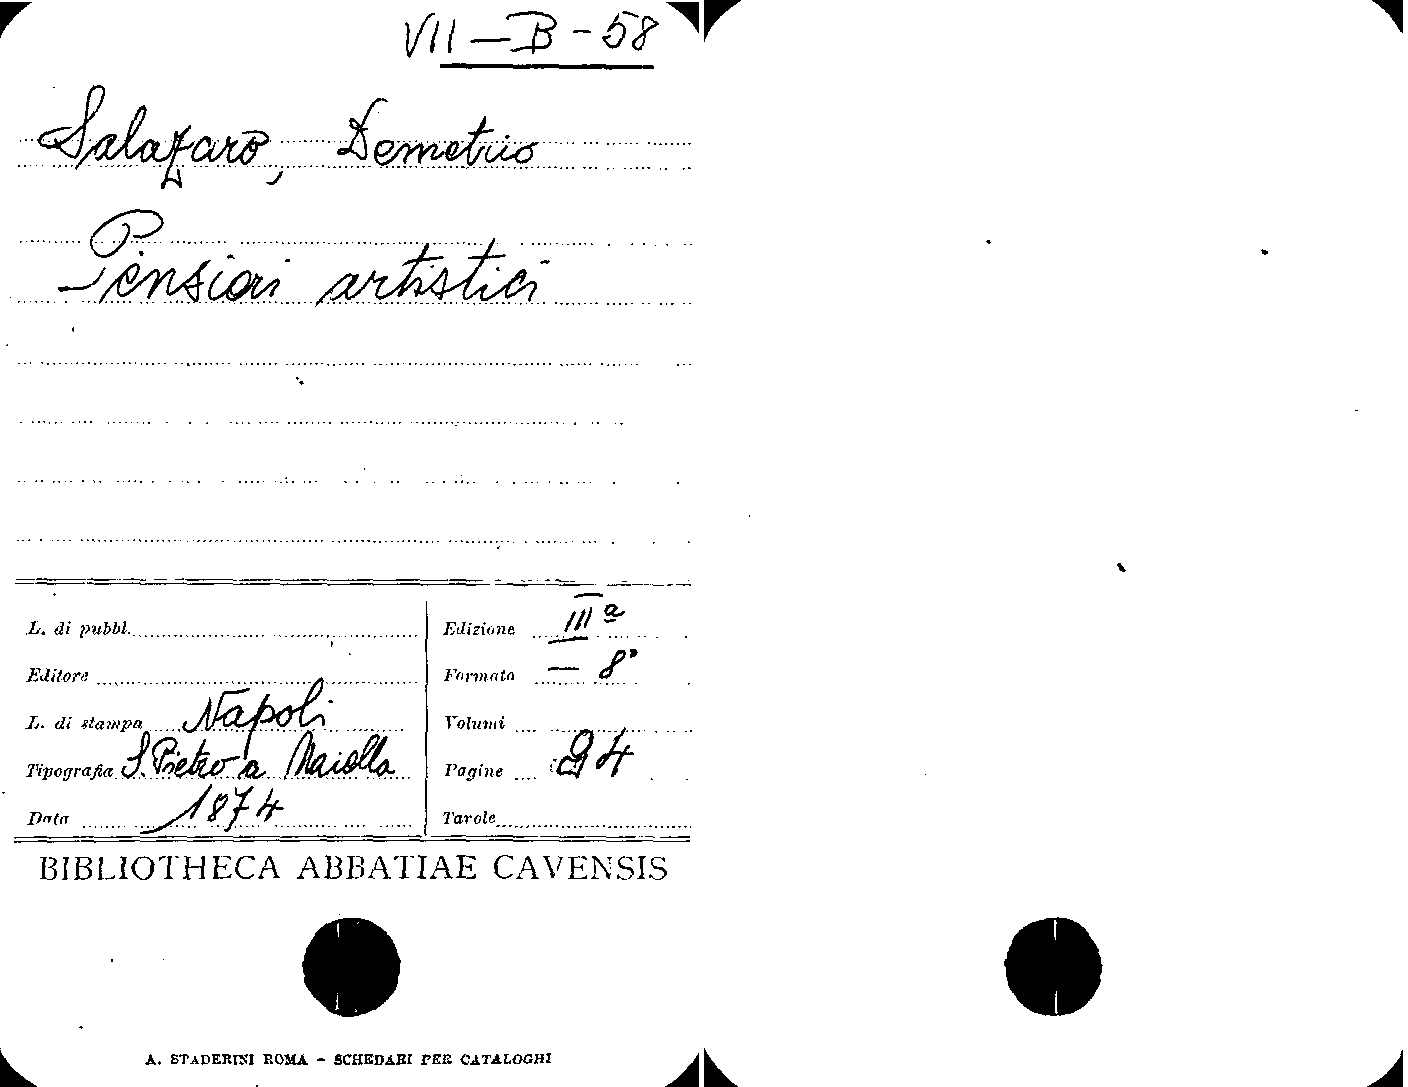 VII - B - 58
Salazaro, Demetrio
Pensieri artistici
L. di pubbl.
Editore
L. di stampa Napoli
Tipografia S. Pietro a Maiella
Data 1874
Edizione IIIª
Formato - 8°
Volumi
Pagine 94
Tavole
BIBLIOTHECA ABBATIAE CAVENSIS
A. STADERINI ROMA - SCHEDARI PER CATALOGHI